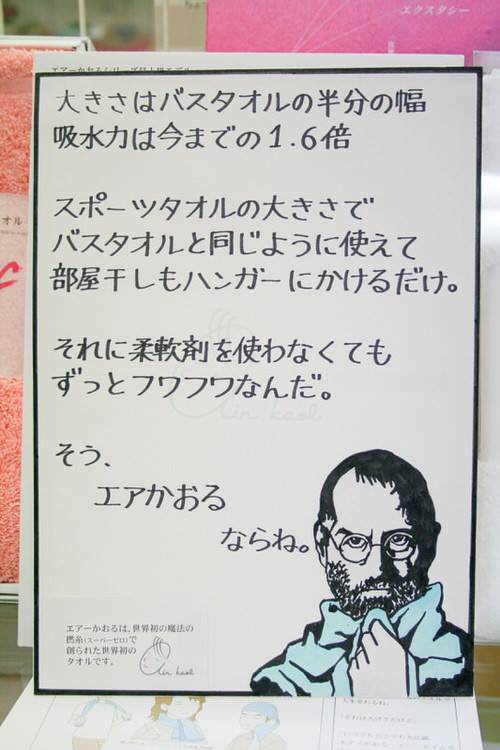 エクスタシー
エアーかおるシリーズ最上級モデル
大きさはバスタオルの半分の幅
吸水力は今までの1.6倍
スポーツタオルの大きさで
バスタオルと同じように使えて
部屋干しもハンガーにかけるだけ。
それに柔軟剤を使わなくても
ずっとフワフワなんだ。
そう、
エアかおる
ならね。
エアーかおるは、世界初の魔法の
撚糸(スーパーゼロ)で
創られた世界初の
タオルです。
air kaol
air kaol
タオル